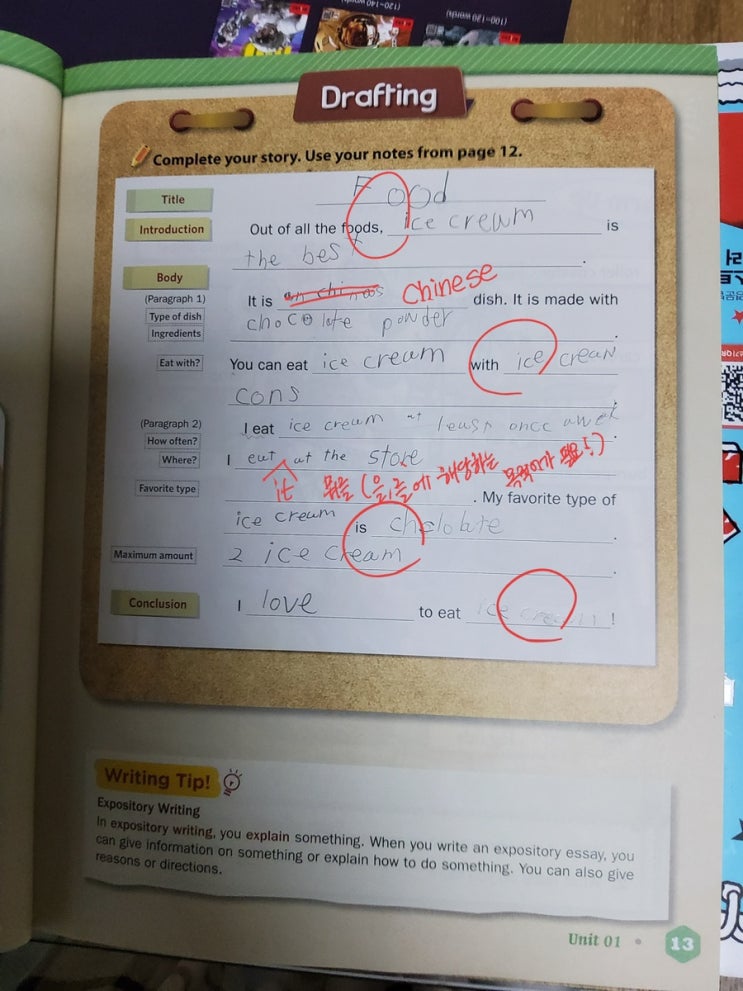 (120~140 words)
(100~130 words)
Drafting
Complete your story. Use your notes from page 12.
Title
Food
Introduction
Out of all the foods, ice cream is
the best.
Body
(Paragraph 1)
Type of dish
Ingredients
It is an chinees Chinese dish. It is made with
chocolate powder.
Eat with?
You can eat ice cream with ice crean
cons.
(Paragraph 2)
How often?
I eat ice cream at least once a wek.
Where?
I eut at the store
it 뭐를 (을,를에 해당하는 목적어가 필요!)
Favorite type
. My favorite type of
ice cream is cholobte.
Maximum amount
2 ice cream.
Conclusion
I love to eat ice cream!
Writing Tip!
Expository Writing
In expository writing, you explain something. When you write an expository essay, you
can give information on something or explain how to do something. You can also give
reasons or directions.
Unit 01 • 13